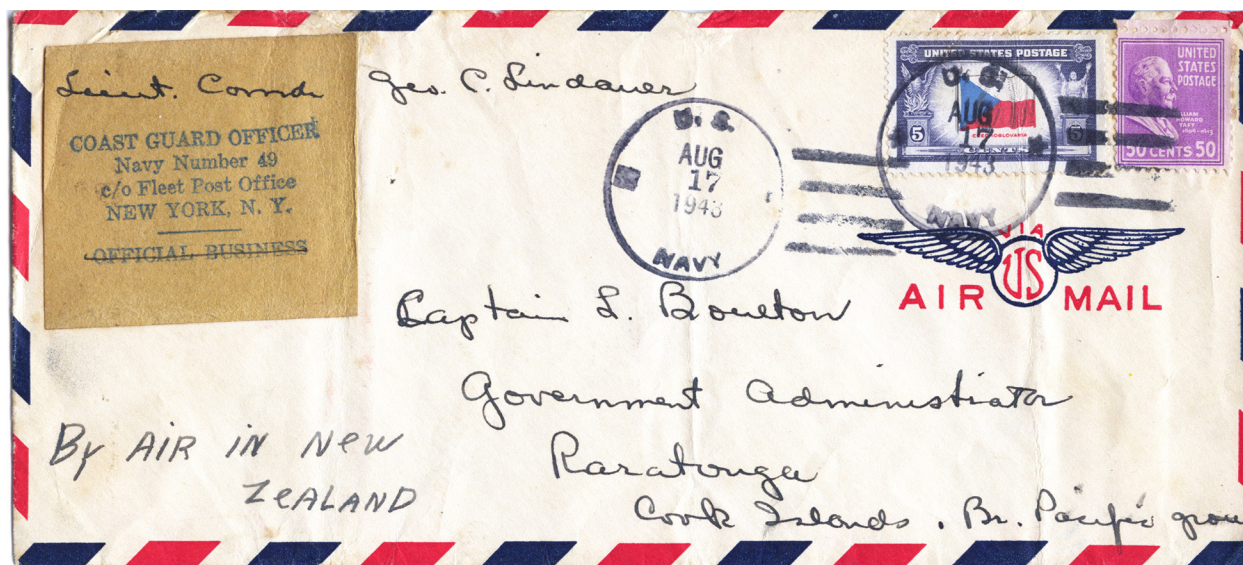 Lieut. Comdr Geo. C. Lindauer
COAST GUARD OFFICER
Navy Number 49
c/o Fleet Post Office
NEW YORK, N. Y.
OFFICIAL BUSINESS
U. S.
AUG
17
1943
NAVY
UNITED STATES POSTAGE
5 5
CZECHOSLOVAKIA
CENTS
U. S.
AUG
17
1943
NAVY
UNITED
STATES
POSTAGE
WILLIAM
HOWARD
TAFT
50 CENTS 50
VIA
US
AIR MAIL
Captain L. Boulton
Government Administrator
Raratonga
Cook Islands, Br. Pacific grou
By AIR in New
ZeALAND